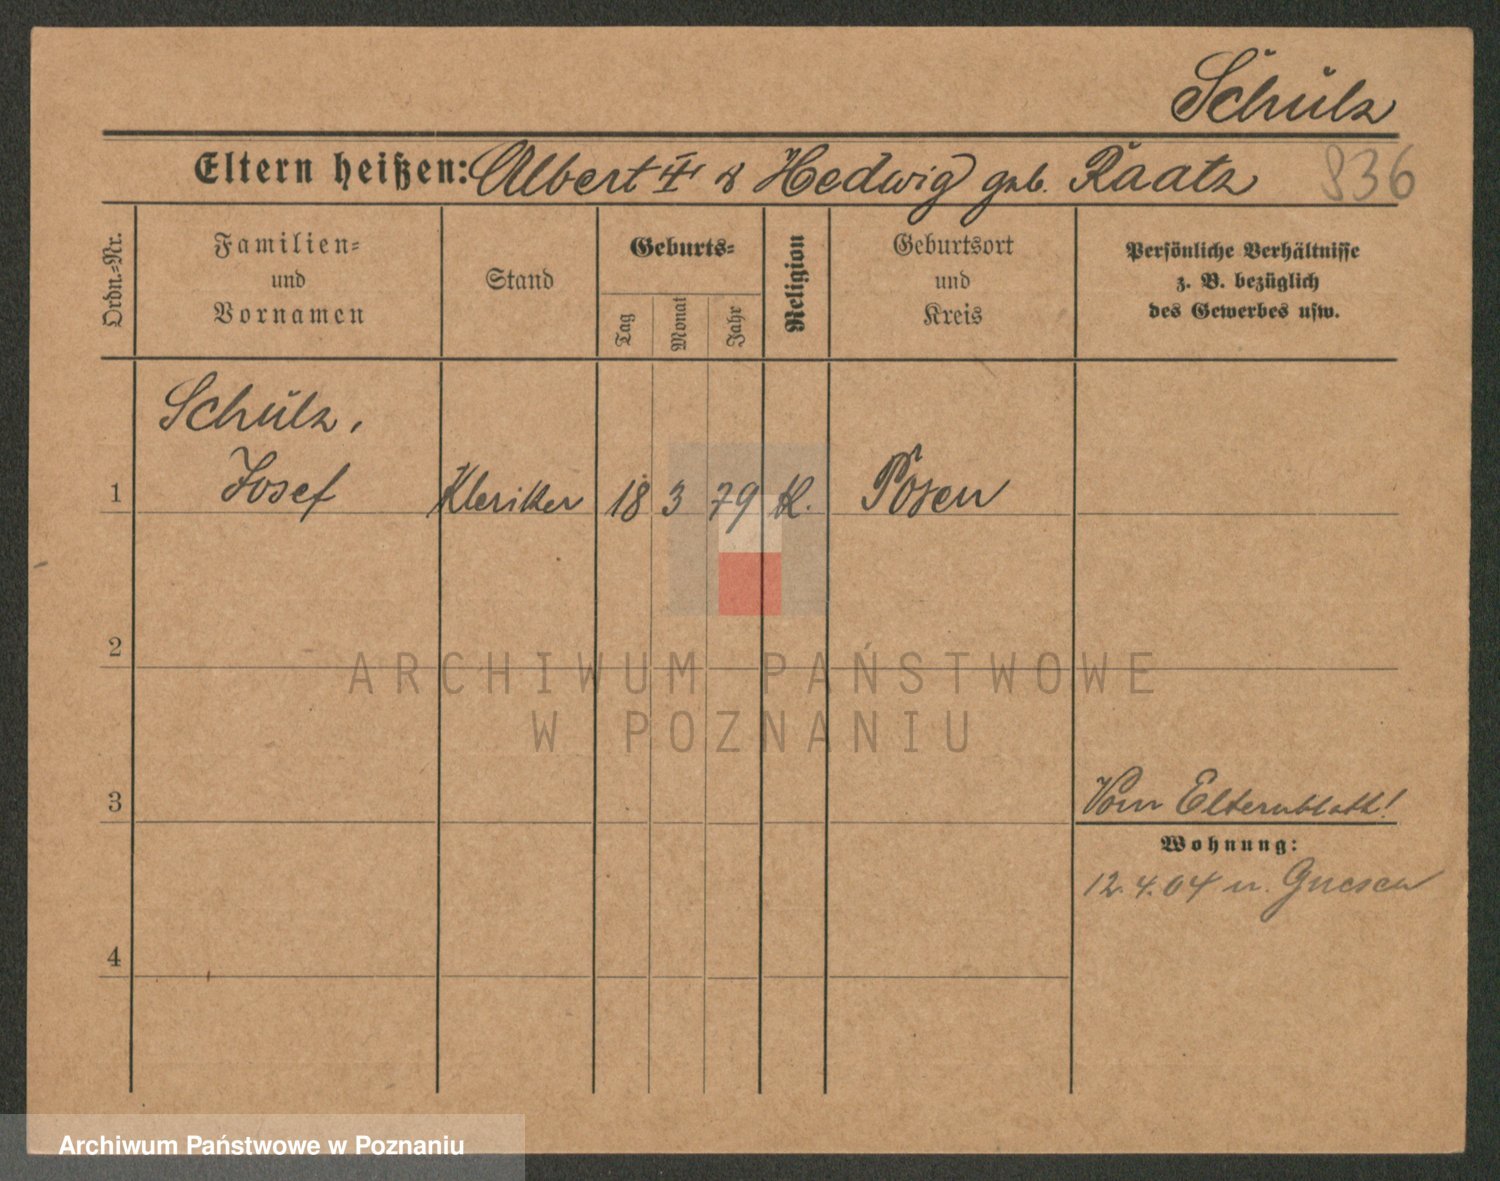 Schulz
Eltern heißen: Albert II. & Hedwig geb. Raatz 836
Ordn.-Nr.
Familien-
und
Vornamen
Stand
Geburts-
Tag
Monat
Jahr
Religion
Geburtsort
und
Kreis
Persönliche Verhältnisse
z. B. bezüglich
des Gewerbes usw.
Schulz,
1 Josef Kleriker 18 3 79 K. Posen
2
ARCHIWUM PAŃSTWOWE
W POZNANIU
3
Vom Elternblatt!
Wohnung:
12.4.04 n. Gnesen
4
Archiwum Państwowe w Poznaniu